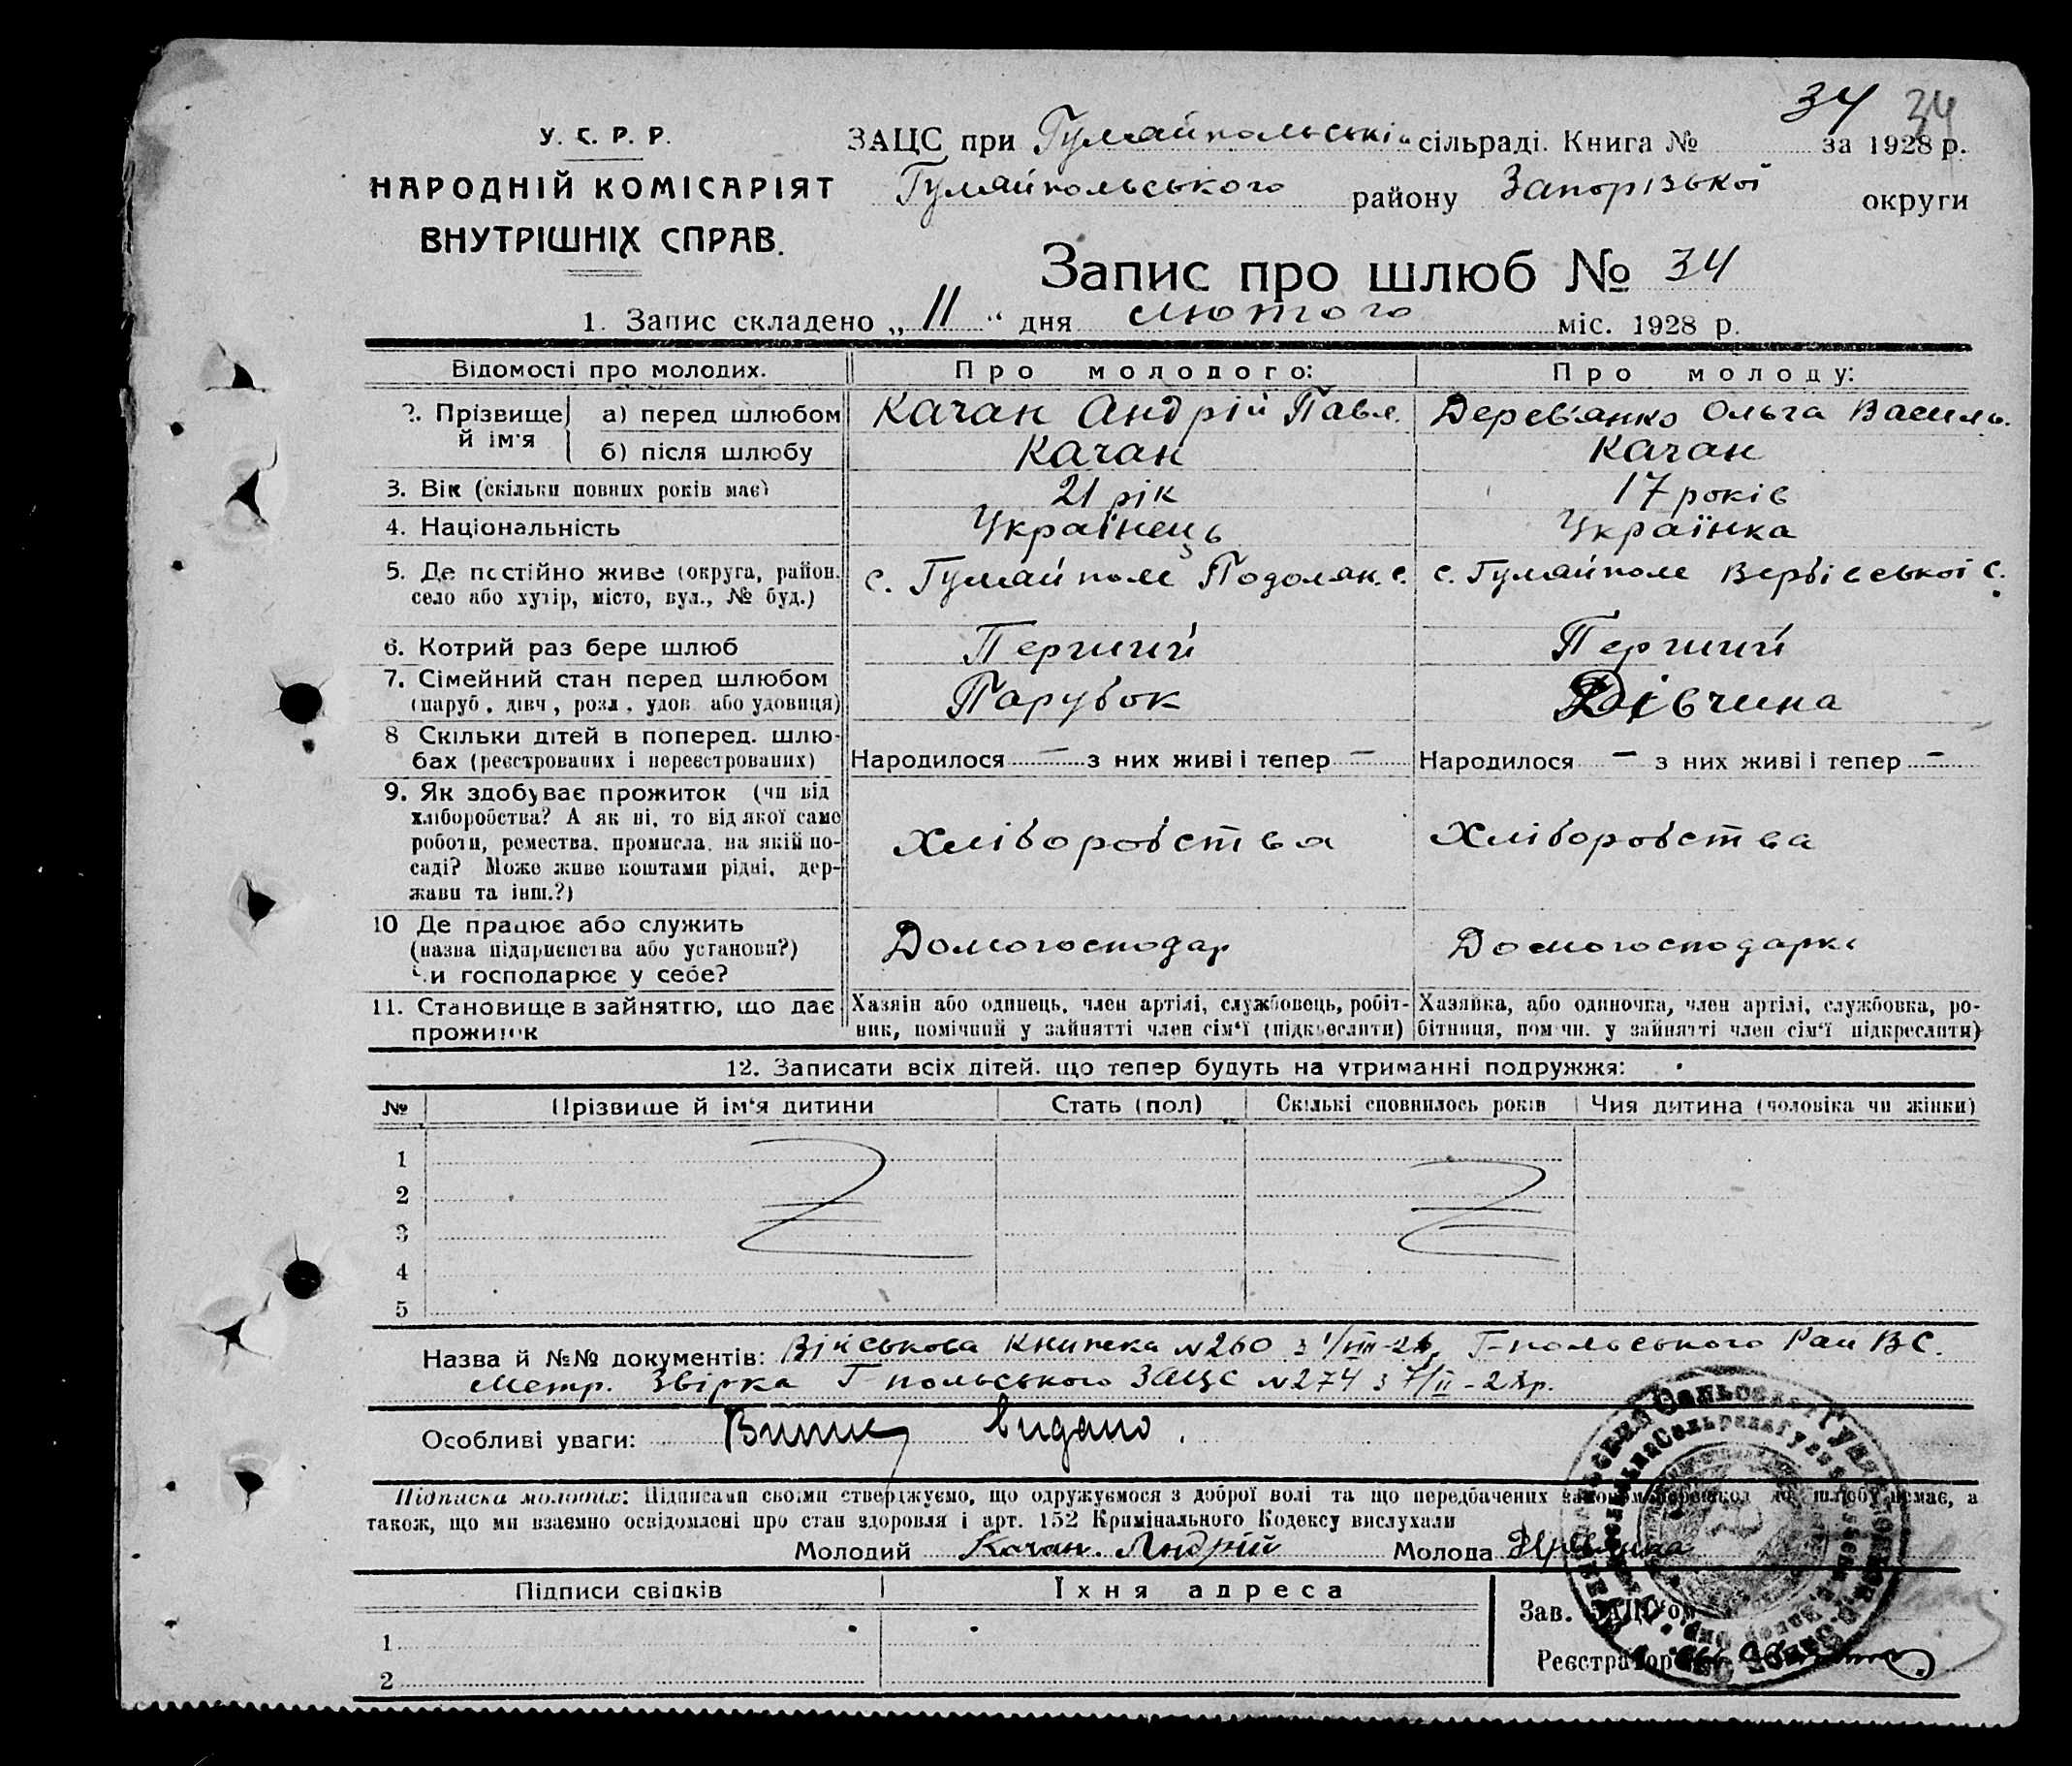 34 34
У. С. Р. Р.
НАРОДНІЙ КОМІСАРІЯТ
ВНУТРІШНІХ СПРАВ.
ЗАЦС при Гуляйпольській сільраді. Книга № за 1928 р.
Гуляйпольського району Запорізької округи
Запис про шлюб № 34
1. Запис складено „11“ дня лютого міс. 1928 р.
Відомості про молодих. Про молодого: Про молоду:
2. Прізвище й ім'я а) перед шлюбом Качан Андрій Павл. Дерев'янко Ольга Василь.
б) після шлюбу Качан Качан
3. Вік (скільки повних років має) 21 рік 17 років
4. Національність Українець Українка
5. Де постійно живе (округа, район, село або хутір, місто, вул., № буд.) с. Гуляйполе Подолян. с. с. Гуляйполе Вербівської с.
6. Котрий раз бере шлюб Перший Перший
7. Сімейний стан перед шлюбом (паруб., дівч., розл., удов. або удовиця) Парубок Дівчина
8 Скільки дітей в поперед. шлюбах (реєстрованих і нереєстрованих) Народилося — з них живі і тепер — Народилося — з них живі і тепер —
9. Як здобуває прожиток (чи від хліборобства? А як ні, то від якої саме роботи, ремества, промисла, на якій посаді? Може живе коштами рідні, держави та інш.?) Хліборобства Хліборобства
10 Де працює або служить (назва підприємства або установи?) Чи господарює у себе? Домогосподар Домогосподарка
11. Становище в зайняттю, що дає прожиток Хазяїн або одинець, член артілі, службовець, робітник, помічний у зайнятті член сім'ї (підкреслити) Хазяйка, або одиночка, член артілі, службовка, робітниця, помічн. у зайнятті член сім'ї підкреслити)
12. Записати всіх дітей, що тепер будуть на утриманні подружжя:
№ Прізвище й ім'я дитини Стать (пол) Скількі сповнилось років Чия дитина (чоловіка чи жінки)
1
2
3
4
5
Назва й №№ документів: Військова книжка №260 з 1/VIII-26. Г-польського Рай ВС.
Метр. Звірка Г-польського ЗАЦС №274 з 7/II-28р.
Особливі уваги: Випис видано.
Підписка молодих: Підписами своїми стверджуємо, що одружуємося з доброї волі та що передбачених законом перешкод до шлюбу немає, а
також, що ми взаємно освідомлені про стан здоровля і арт. 152 Кримінального Кодексу вислухали
Молодий Качан Андрій Молода
Підписи свідків Їхня адреса
Зав. ЗАЦС'ом
1
Реєстратор
2